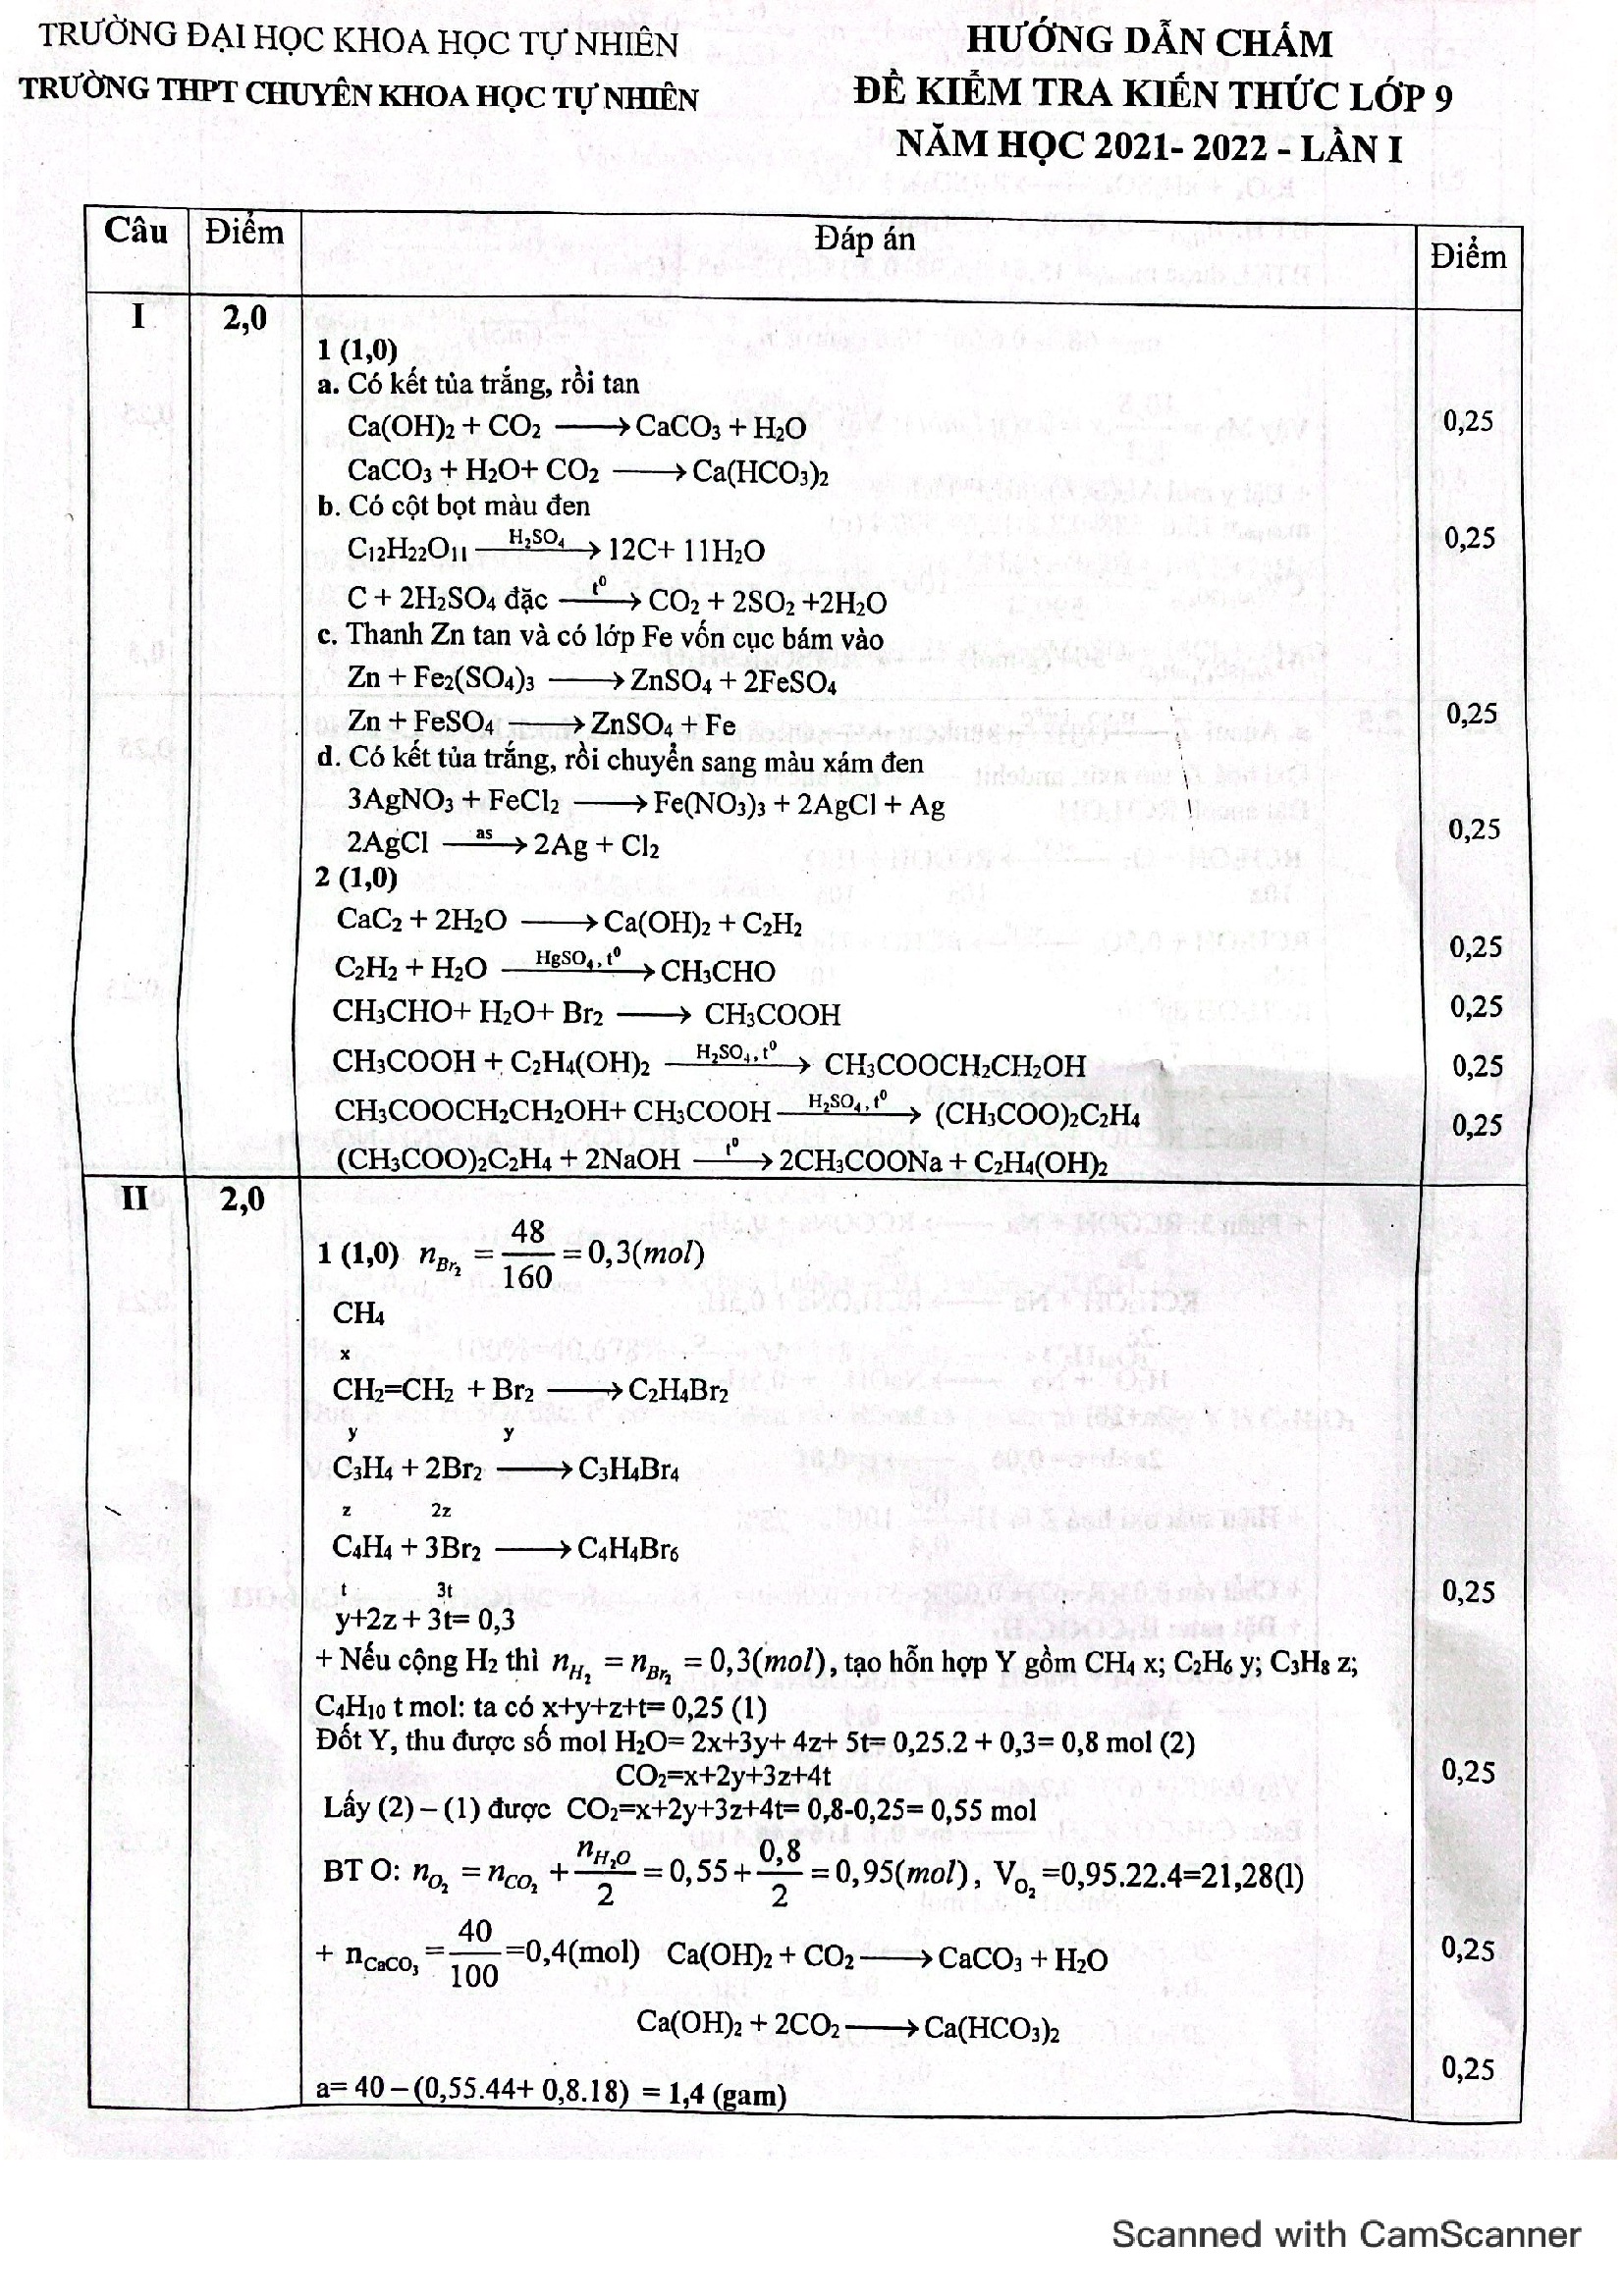 TRƯỜNG ĐẠI HỌC KHOA HỌC TỰ NHIÊN
TRƯỜNG THPT CHUYÊN KHOA HỌC TỰ NHIÊN
HƯỚNG DẪN CHẤM
ĐỀ KIỂM TRA KIẾN THỨC LỚP 9
NĂM HỌC 2021- 2022 - LẦN I
Câu Điểm Đáp án Điểm
I 2,0
1 (1,0)
a. Có kết tủa trắng, rồi tan
Ca(OH)₂ + CO₂ ⟶ CaCO₃ + H₂O 0,25
CaCO₃ + H₂O+ CO₂ ⟶ Ca(HCO₃)₂
b. Có cột bọt màu đen
C₁₂H₂₂O₁₁ —H₂SO₄→ 12C+ 11H₂O 0,25
C + 2H₂SO₄ đặc —t⁰→ CO₂ + 2SO₂ +2H₂O
c. Thanh Zn tan và có lớp Fe vốn cục bám vào
Zn + Fe₂(SO₄)₃ ⟶ ZnSO₄ + 2FeSO₄
Zn + FeSO₄ ⟶ ZnSO₄ + Fe 0,25
d. Có kết tủa trắng, rồi chuyển sang màu xám đen
3AgNO₃ + FeCl₂ ⟶ Fe(NO₃)₃ + 2AgCl + Ag
2AgCl —as→ 2Ag + Cl₂ 0,25
2 (1,0)
CaC₂ + 2H₂O ⟶ Ca(OH)₂ + C₂H₂ 0,25
C₂H₂ + H₂O —HgSO₄, t⁰→ CH₃CHO
CH₃CHO+ H₂O+ Br₂ ⟶ CH₃COOH 0,25
CH₃COOH + C₂H₄(OH)₂ —H₂SO₄, t⁰→ CH₃COOCH₂CH₂OH 0,25
CH₃COOCH₂CH₂OH+ CH₃COOH —H₂SO₄, t⁰→ (CH₃COO)₂C₂H₄ 0,25
(CH₃COO)₂C₂H₄ + 2NaOH —t⁰→ 2CH₃COONa + C₂H₄(OH)₂
II 2,0
1 (1,0) n_Br₂ = 48/160 = 0,3(mol)
CH₄
x
CH₂=CH₂ + Br₂ ⟶ C₂H₄Br₂
y y
C₃H₄ + 2Br₂ ⟶ C₃H₄Br₄
z 2z
C₄H₄ + 3Br₂ ⟶ C₄H₄Br₆
t 3t
y+2z + 3t= 0,3 0,25
+ Nếu cộng H₂ thì n_H₂ = n_Br₂ = 0,3(mol), tạo hỗn hợp Y gồm CH₄ x; C₂H₆ y; C₃H₈ z;
C₄H₁₀ t mol: ta có x+y+z+t= 0,25 (1)
Đốt Y, thu được số mol H₂O= 2x+3y+ 4z+ 5t= 0,25.2 + 0,3= 0,8 mol (2)
CO₂=x+2y+3z+4t 0,25
Lấy (2) – (1) được CO₂=x+2y+3z+4t= 0,8-0,25= 0,55 mol
BT O: n_O₂ = n_CO₂ + n_H₂O/2 = 0,55 + 0,8/2 = 0,95(mol), V_O₂ =0,95.22.4=21,28(l)
+ n_CaCO₃ = 40/100 =0,4(mol) Ca(OH)₂ + CO₂ ⟶ CaCO₃ + H₂O 0,25
Ca(OH)₂ + 2CO₂ ⟶ Ca(HCO₃)₂
a= 40 – (0,55.44+ 0,8.18) = 1,4 (gam) 0,25
Scanned with CamScanner